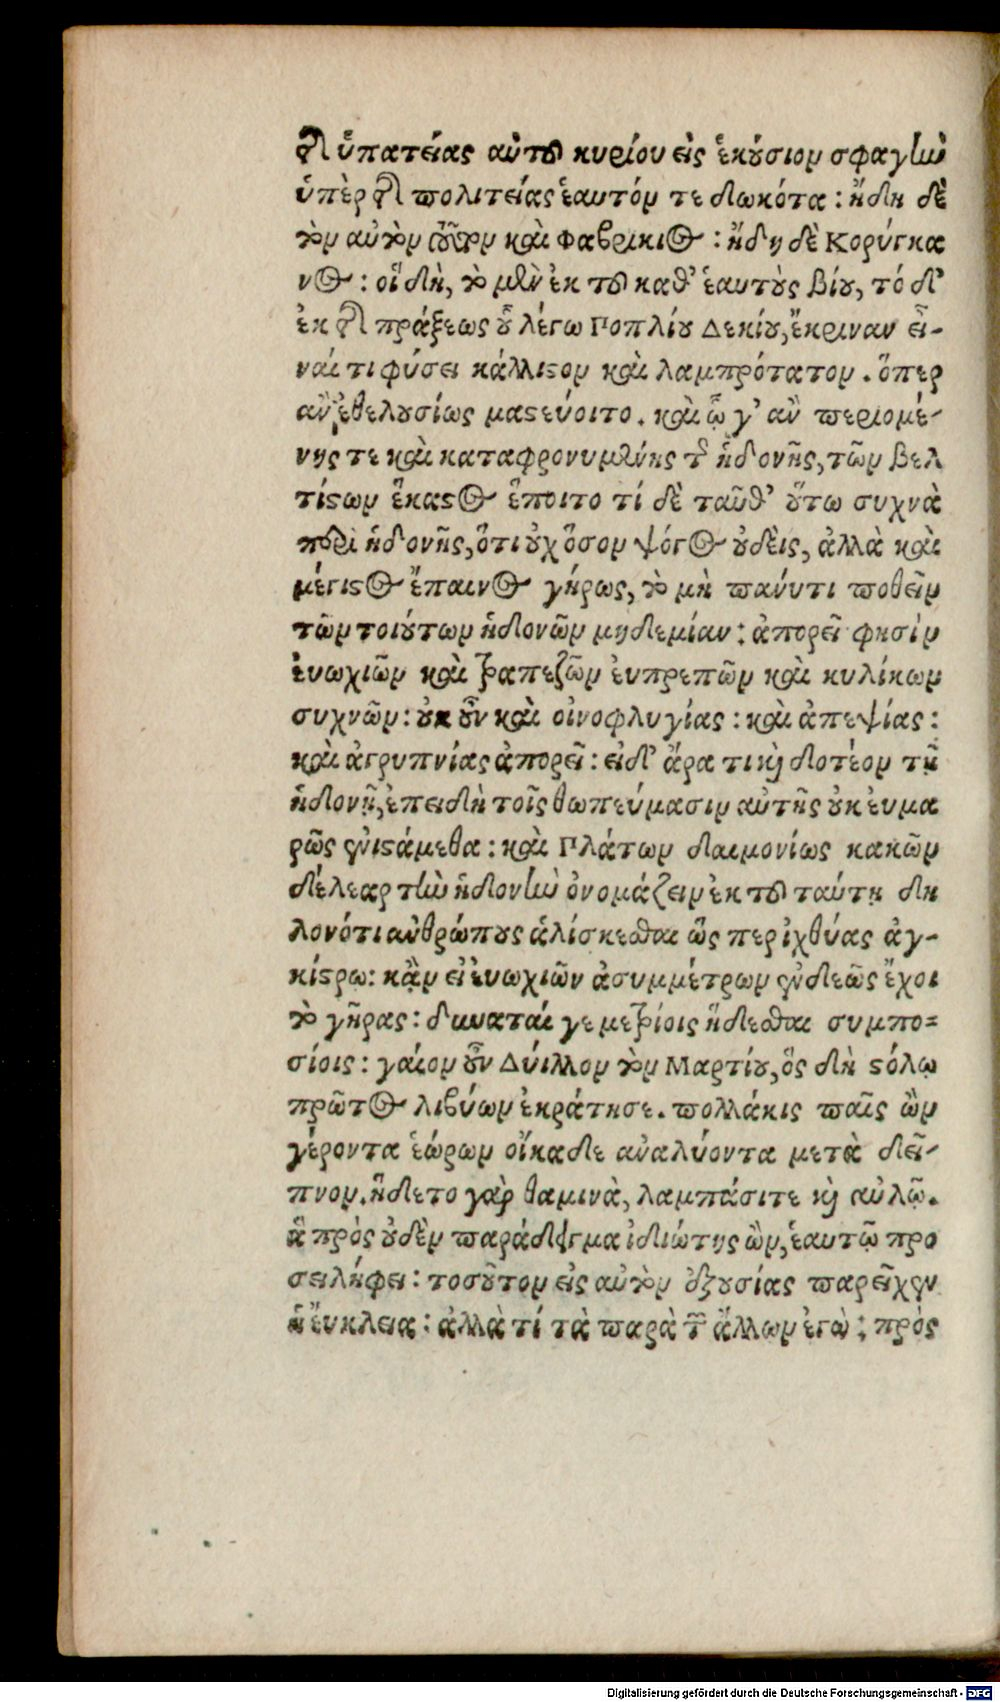 τῆς ὑπατείας αὐτοῦ κυρίου εἰς ἑκούσιον σφαγὴν
ὑπὲρ τῆς πολιτείας ἑαυτόν τε δωκότα: ἤδη δὲ
τὸν αὐτὸν τοῦτον καὶ Φαβρίκιος: ἤδη δὲ Κορύγκα
νος: οἳ δὴ, τὸ μὲν ἐκ τοῦ καθ' ἑαυτοὺς βίου, τό δ'
ἐκ τῆς πράξεως οὗ λέγω Ποπλίου Δεκίου, ἔκριναν εἶ-
ναί τι φύσει κάλλιστον καὶ λαμπρότατον. ὅπερ
ἂν ἐθελουσίως μαστεύοιτο. καὶ ᾧ γ' ἂν περιομέ-
νης τε καὶ καταφρονυμένης τῆς ἡδονῆς, τῶν βελ
τίστων ἕκαστος ἕποιτο τί δὲ ταῦθ' οὕτω συχνὰ
περὶ ἡδονῆς, ὅτι οὐχ ὅσον ψόγος οὐδεὶς, ἀλλὰ καὶ
μέγιστος ἔπαινος γήρως, τὸ μὴ πάνυτι ποθεῖν
τῶν τοιούτων ἡδονῶν μηδεμίαν: ἀπορεῖ φησὶν
ἐυωχιῶν καὶ τραπεζῶν ἐυπρεπῶν καὶ κυλίκων
συχνῶν: οὐκ οὖν καὶ οἰνοφλυγίας: καὶ ἀπεψίας:
καὶ ἀγρυπνίας ἀπορεῖ: εἰδ' ἄρα τι καὶ δοτέον τῇ
ἡδονῇ, ἐπειδὴ τοῖς θωπεύμασιν αὐτῆς οὐκ ἐυμα
ρῶς ἐνιστάμεθα: καὶ Πλάτων δαιμονίως κακῶν
δέλεαρ τὴν ἡδονὴν ὀνομάζειν ἐκ τοῦ ταύτῃ δη
λονότι ἀνθρώπους ἁλίσκεσθαι ὥς περ ἰχθύας ἀγ-
κίστρω: κᾂν εἰ ἐυωχιῶν ἀσυμμέτρων ἐνδεῶς ἔχοι
τὸ γῆρας: δυναταί γε μετρίοις ἥδεσθαι συμπο-
σίοις: γάϊον οὖν Δύιλλον τὸν Μαρτίου, ὃς δὴ στόλῳ
πρῶτος λιβύων ἐκράτησε. πολλάκις παῖς ὢν
γέροντα ἑώρων οἴκαδε ἀναλύοντα μετὰ δεῖ-
πνον. ἥδετο γὰρ θαμινὰ, λαμπάσιτε καὶ αὐλῷ.
ἃ πρὸς οὐδὲν παράδειγμα ἰδιώτης ὢν, ἑαυτῷ προ
σειλήφει: τοσοῦτον εἰς αὐτὸν ἐξουσίας παρεῖχεν
ἡ ἔυκλεια: ἀλλὰ τί τὰ παρὰ τῶν ἄλλων ἐγὼ; πρὸς
Digitalisierung gefördert durch die Deutsche Forschungsgemeinschaft - DFG